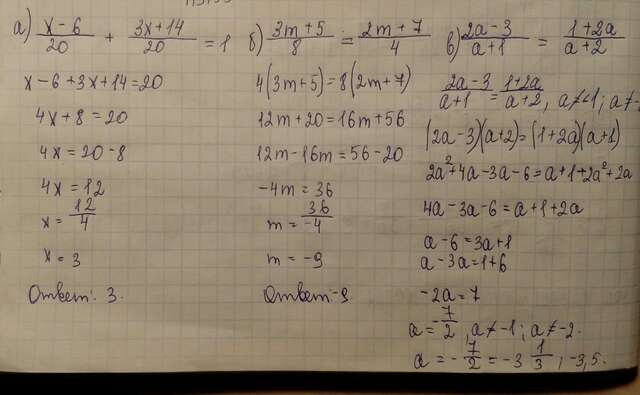 а) (x-6)/20 + (3x+14)/20 = 1
x-6+3x+14=20
4x+8=20
4x=20-8
4x=12
x=12/4
x=3
Ответ: 3.
б) (3m+5)/8 = (2m+7)/4
4(3m+5)=8(2m+7)
12m+20=16m+56
12m-16m=56-20
-4m=36
m=36/-4
m=-9
Ответ:-9
в) (2a-3)/(a+1) = (1+2a)/(a+2)
(2a-3)/(a+1) = (1+2a)/(a+2), a≠-1; a≠-
(2a-3)(a+2)=(1+2a)(a+1)
2a²+4a-3a-6=a+1+2a²+2a
4a-3a-6=a+1+2a
a-6=3a+1
a-3a=1+6
-2a=7
a=-7/2, a≠-1; a≠-2.
a=-7/2=-3 1/3; -3,5.